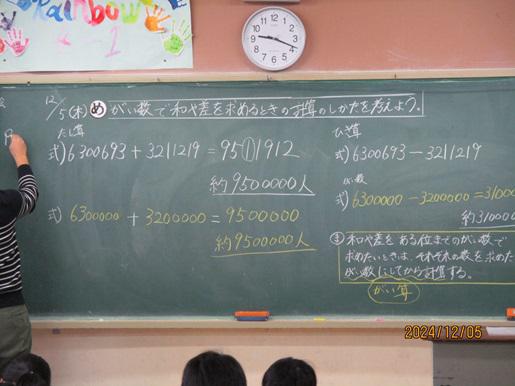 Rainbow
12/5(木) め がい数で和や差を求めるときの計算のしかたを考えよう。
たし算
式) 6300693 + 3211219 = 9511912
約9500000人
式) 6300000 + 3200000 = 9500000
約9500000人
ひき算
式) 6300693 − 3211219
がい数
式) 6300000 − 3200000 = 31000
約310000
ま 和や差をある位までのがい数で
求めたいときは、それぞれの数を求めた
がい数にしてから計算する。
がい算
2024/12/05